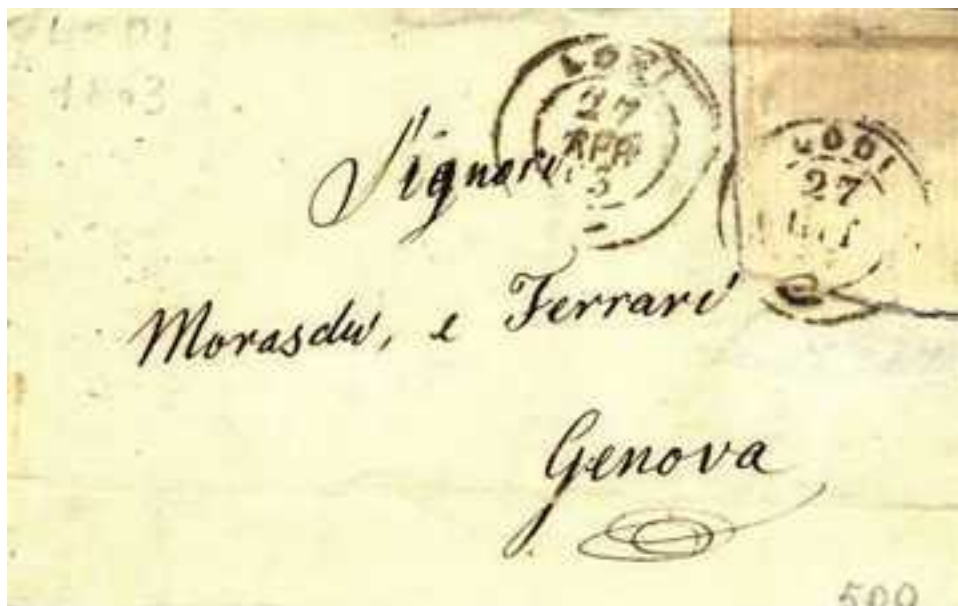 LODI
1863
LODI
27
APR
63
LODI
27
Signori
Morasdu, e Ferrari
Genova
500